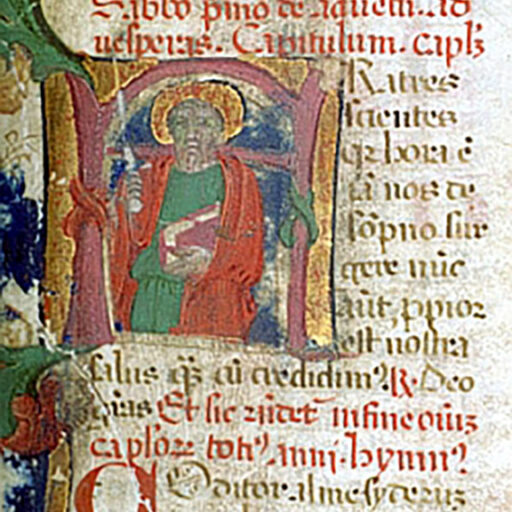 Sabbo pimo de aduem. ad
uesperas. Capitulum. capl'3
Ratres
scientes
qr hora ē
iā nos de
sōpno sur
gere nūc
aūt, ppior
est nostra
salus q3 cū credidim9 R. Deo
gr̄as Et sic rn̄det in fine oīu3
capl'or toti9 anni. hymn9
Conditor alme syderu3